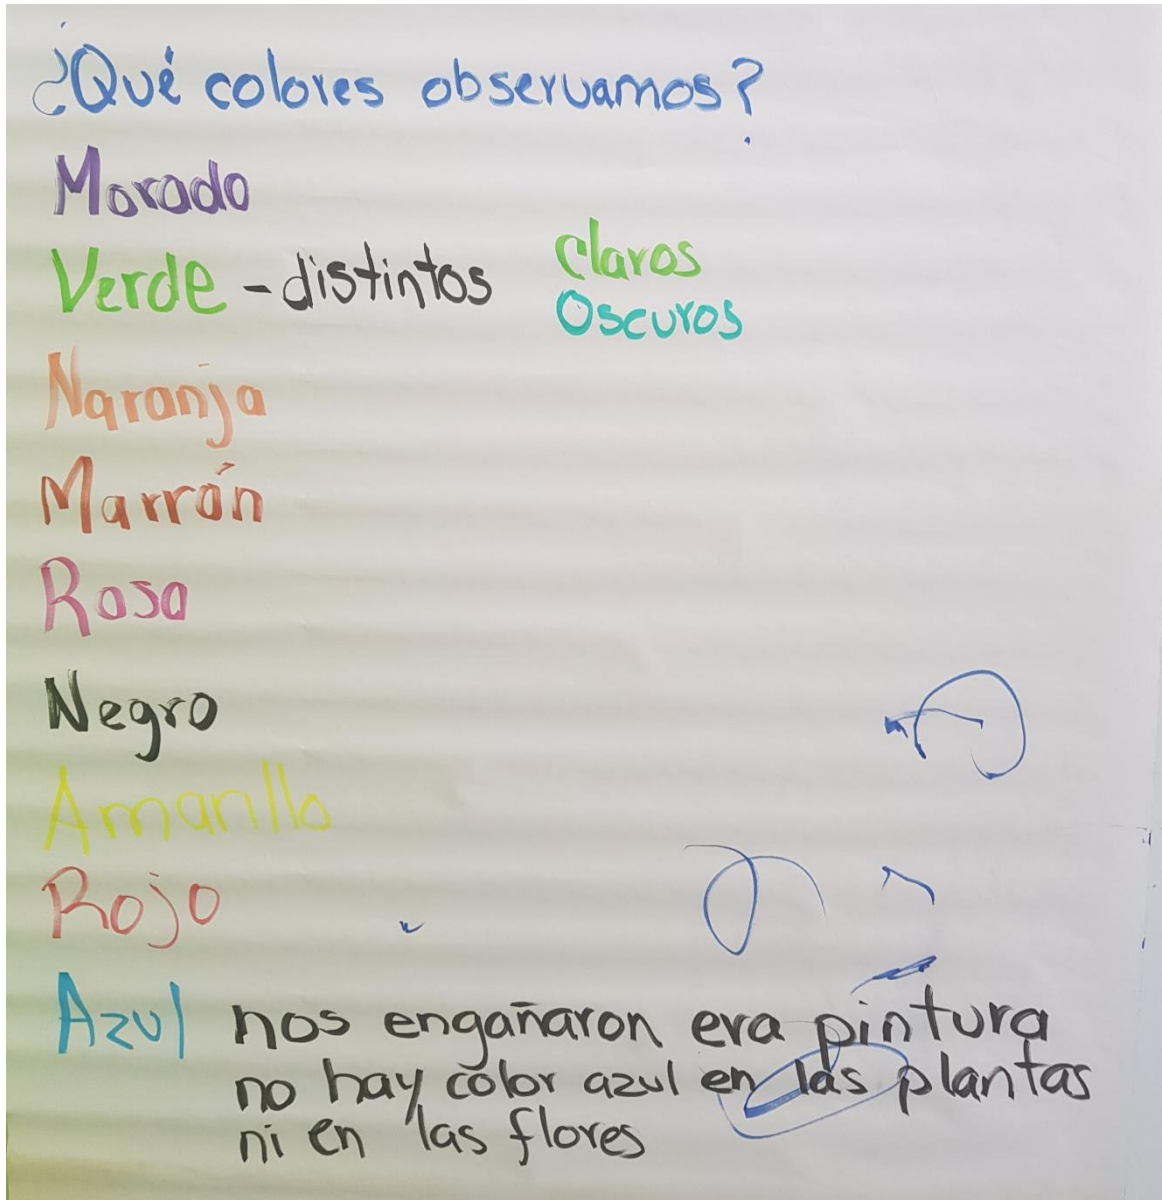 ¿Qué colores observamos?
Morado
Verde - distintos Claros
Oscuros
Naranja
Marrón
Rosa
Negro
Amarillo
Rojo
Azul nos engañaron era pintura
no hay color azul en las plantas
ni en las flores